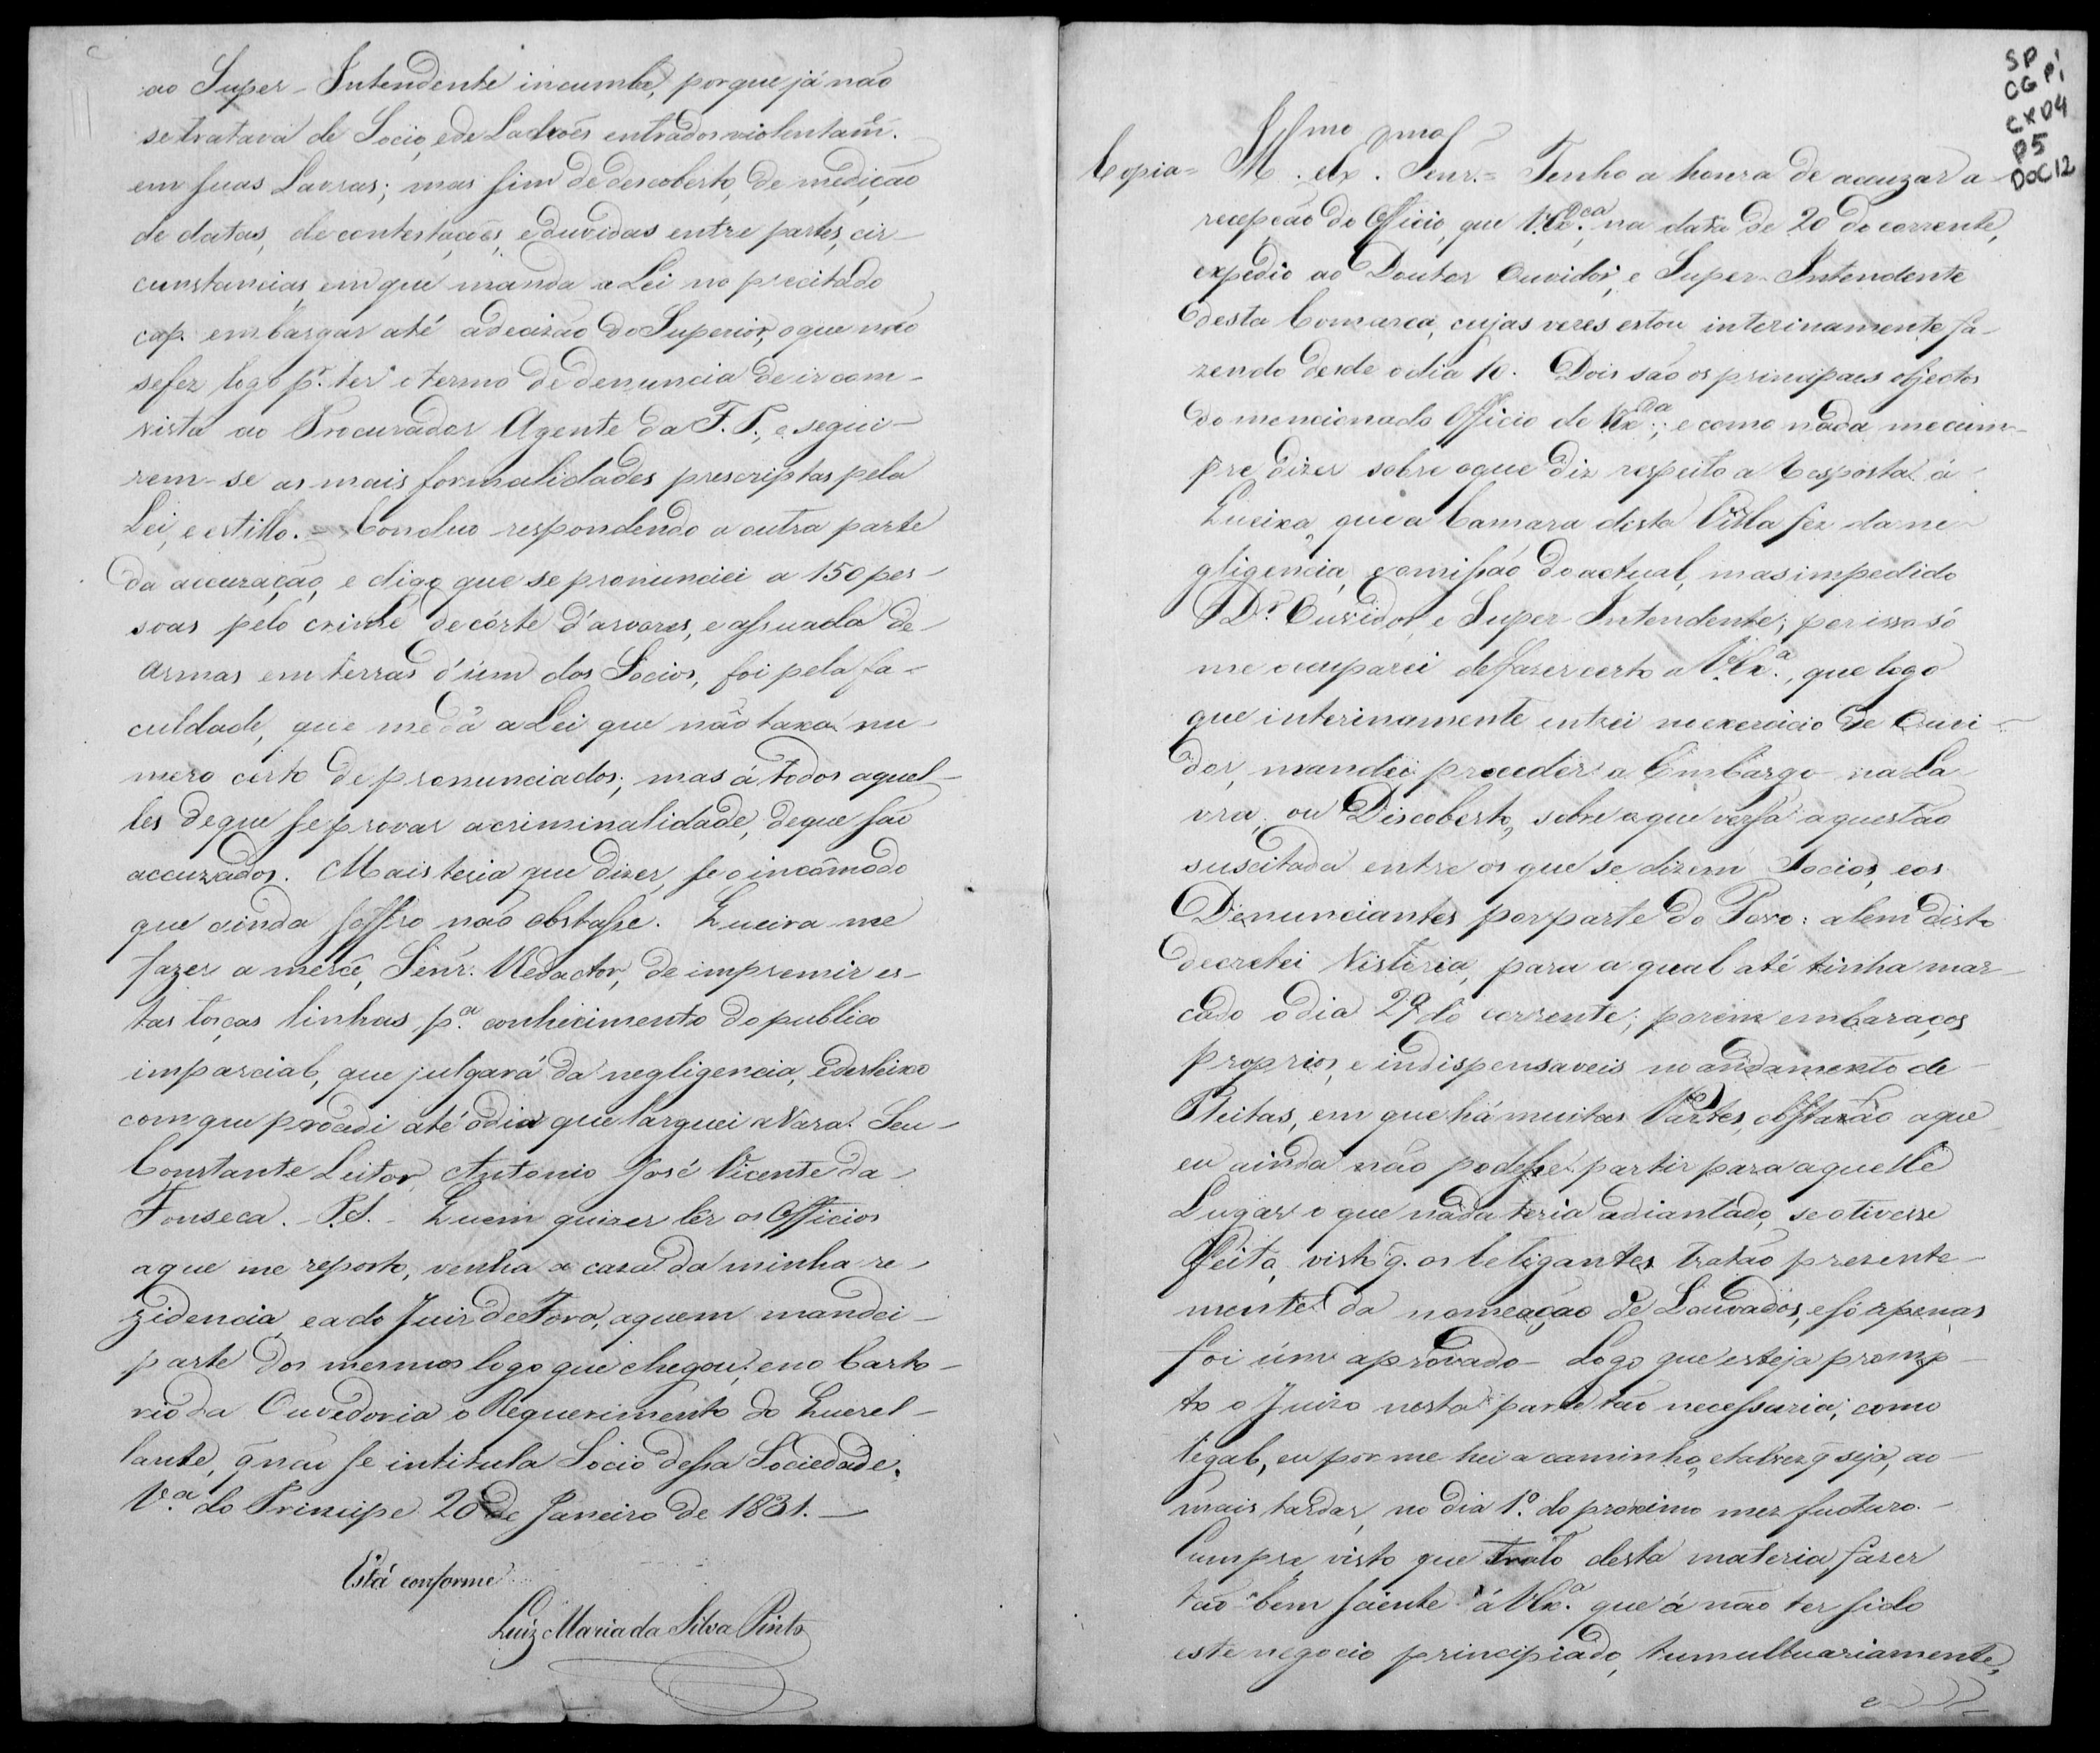 ao Super-Intendente incumbe, porque já não
se tratava de Socio, e de Ladroẽs entrados violentam.e
em suas Lavras; mas sim de descoberto, de medição
de datas, de contestaçoẽs, e duvidas entre partes, cir-
cunstancias, em que manda a Lei no precitado
cap. embargar até a decizão do Superior, o que não
se fez logo p.r ter o termo de denuncia de ir com
vista ao Procurador Agente da F. P., e segui-
rem-se as mais formalidades prescriptas pela
Lei, e estillo. = Concluo respondendo a outra parte
da accuzação, e digo que se pronunciei a 150 pes-
soas pelo crime de córte d'arvores, e assuada de
armas em terras d'úm dos Socios, foi pela fa-
culdade, que me dá a Lei que não taxa nu-
mero certo de pronunciados; mas á todos aquel-
les de que se provar a criminalidade, de que são
accuzados. Mais teria que dizer, se o incõmodo
que ainda soffro não obstasse. Queira me
fazer a mercê, Senr. Redactor, de impremir es-
tas toscas linhas p.a conhecimento do publico
imparcial, que julgará da negligencia, e desleixo
com que procedi até o dia que larguei a Vara. Seu
Constante Leitor, Antonio José Vicente da
Fonseca. - P.S. - Quem quizer lêr os Officios
a que me reporto, venha a caza da minha re-
zidencia, e a do Juiz de Fora, a quem mandei
parte dos mesmos logo que chegou; e no Carto-
rio da Ouvedoria o Requerimento do Querel-
lante, q̃ não se intitula Socio dessa Sociedade.
V.a do Principe 20 de Janeiro de 1831. —
Está conforme
Luiz Maria da Silva Pinto
SP
CG Pi
CX 04
P5
DOC 12
Copia = Ill.mo e Ex.mo Senr. = Tenho a honra de accuzar a
recepção do Officio, que V. Ex.ca, na data de 20 do corrente,
expedio ao Doutor Ouvidor, e Super-Intendente
desta Comarca, cujas vezes estou interinamente fa-
zendo desde o dia 10. Dois são os principaes objectos
do mencionado Officio de V. Ex.; e como nada me cum-
pre dizer sobre o que diz respeito a resposta á
Queixa, que a Camara desta Villa fez da ne-
gligencia, e omissão do actual, mas impedido
D.r Ouvidor, e Super-Intendente; por isso só
me occuparei de fazer certo a V. Ex.a, que logo
que interinamente entrei no exercicio de Ouvi-
dor, mandei proceder a Embargo na La-
vra, ou Discoberto, sobre a que versa a questão
suscitada entre os que se dizem Socios, e os
Denunciantes por parte do Povo: alem disto
decretei Vistoria, para a qual até tinha mar-
cado o dia 29 do corrente; porem embaraços
proprios, e indispensaveis no andamento de
Pleitos, em que há muitas Partes, obstarão a que
eu ainda não podesse partir para aquelle
Lugar o que nada teria adiantado, se o tivesse
feito, visto q̃. os letigantes tratão presente-
mente da nomeação de Louvados, e só apenas
foi úm aprovado - Logo que esteja promp-
to o Juizo nesta parte tão necessaria, como
legal, eu por me hei a caminho, e talvez q̃ seja, ao
mais tardar, no dia 1.º do proximo mez futuro.
Cumpre, visto que trato desta materia fazer
tão bem sciente á V. Ex.a que á não ter sido
este negocio principiado, tumultuariamente,
e